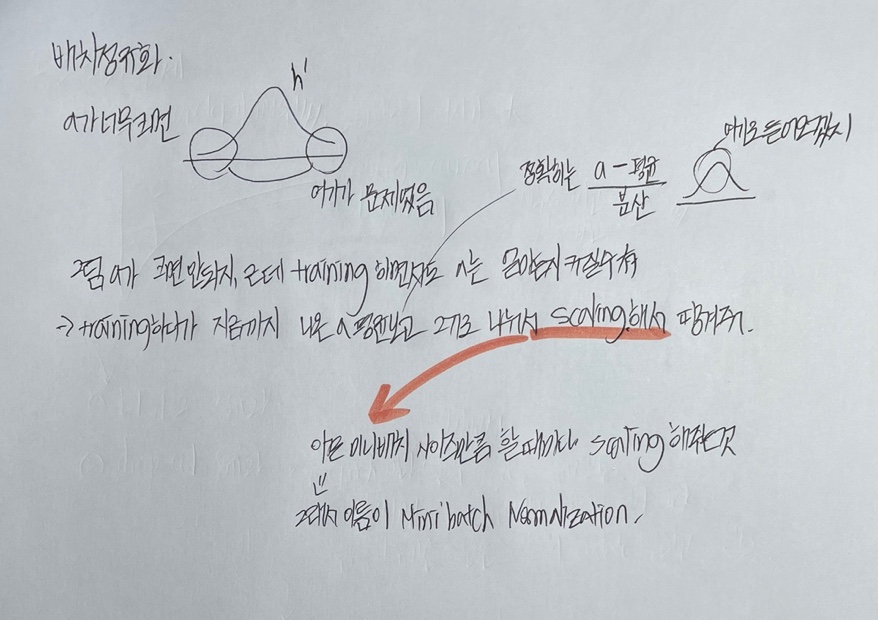 배치정규화.
a가 너무 크면
h'
여기가 문제였음
정확히는 a - 평균
분산
여기로 들어오겠지
그럼 a가 크면 안되지. 근데 training 하면서도 a는 얼마든지 커질수有
-> training하다가 지금까지 나온 a 평균보고 크기로 나눠서 scaling해서 땡겨줘.
이은 미니배치 사이즈만큼 할때마다 scaling 해주는것
그래서 이름이 Mini batch Normalization.